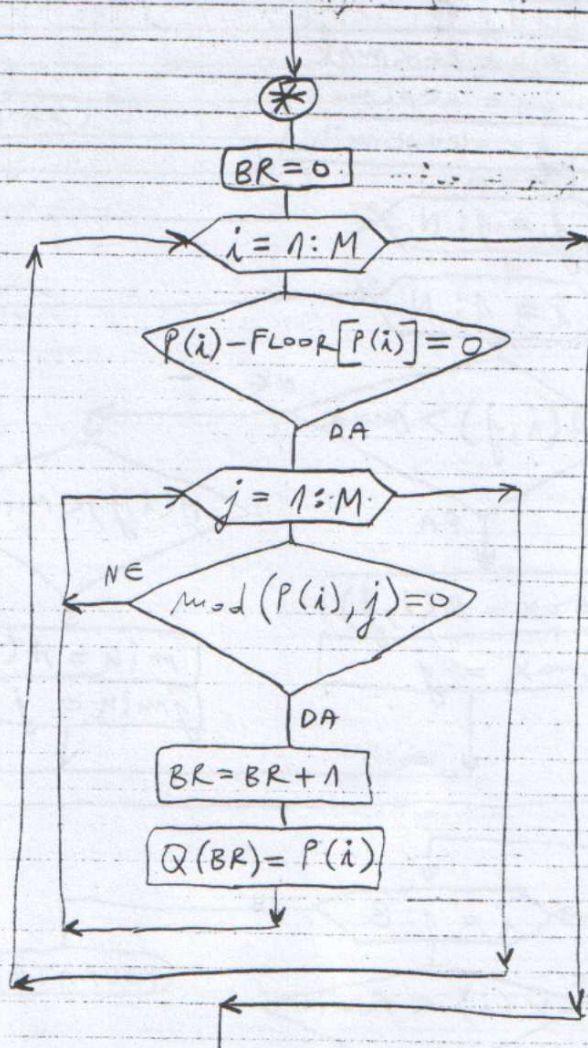 *
BR = 0
i = 1 : M
P(i) - FLOOR[P(i)] = 0
DA
j = 1 : M
NE
mod (P(i), j) = 0
DA
BR = BR + 1
Q(BR) = P(i)